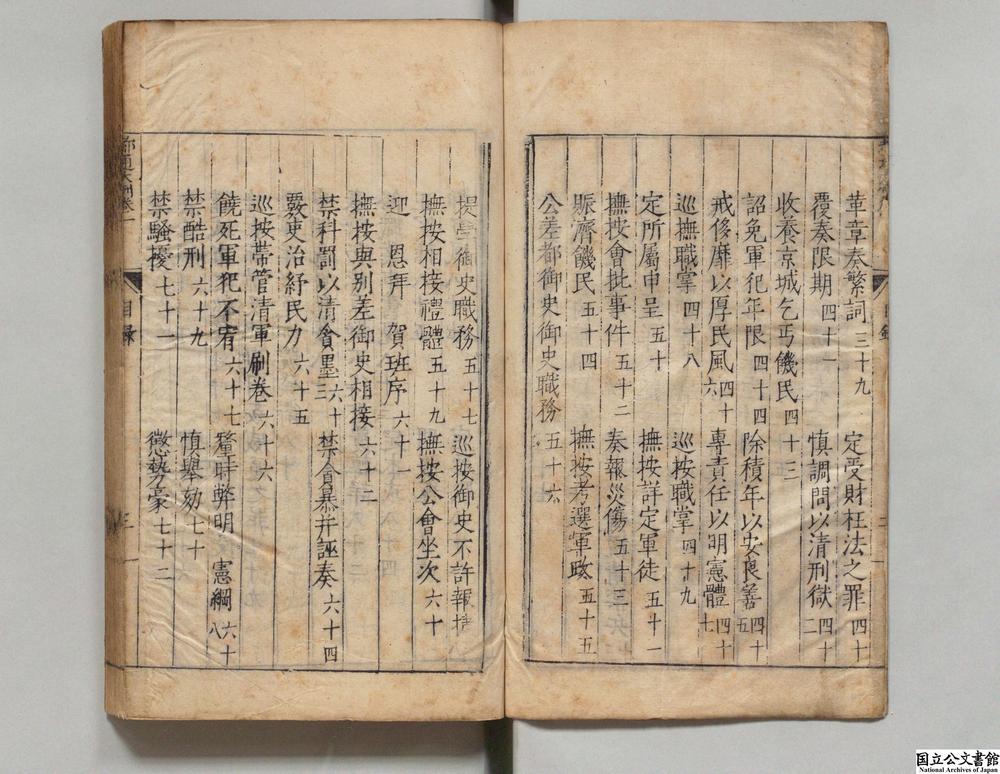 革章奏繁詞 三十九 定受財枉法之罪 四十
覆奏限期 四十一 慎調問以清刑獄 四十二
收養京城乞丐饑民 四十三
詔免軍犯年限 四十四 除積年以安良善 四十五
戒侈靡以厚民風 四十六 專責任以明憲體 四十七
巡撫職掌 四十八 巡按職掌 四十九
定所屬申呈 五十 撫按詳定軍徒 五十一
撫按會批事件 五十二 奏報災傷 五十三
賑濟饑民 五十四 撫按考選軍政 五十五
公差都御史御史職務 五十六
提學御史職務 五十七 巡按御史不許報捷
撫按相接禮體 五十九 撫按公會坐次 六十
迎 恩拜 賀班序 六十一
撫按與別差御史相接 六十二
禁科罰以清貪墨 六十三 禁貪暴并誣奏 六十四
覈吏治紓民力 六十五
巡按帶管清軍刷卷 六十六
饒死軍犯不宥 六十七 釐時弊明 憲綱 六十八
禁酷刑 六十九 慎舉劾 七十
禁騷擾 七十一 懲勢豪 七十二
目錄
三
国立公文書館
National Archives of Japan